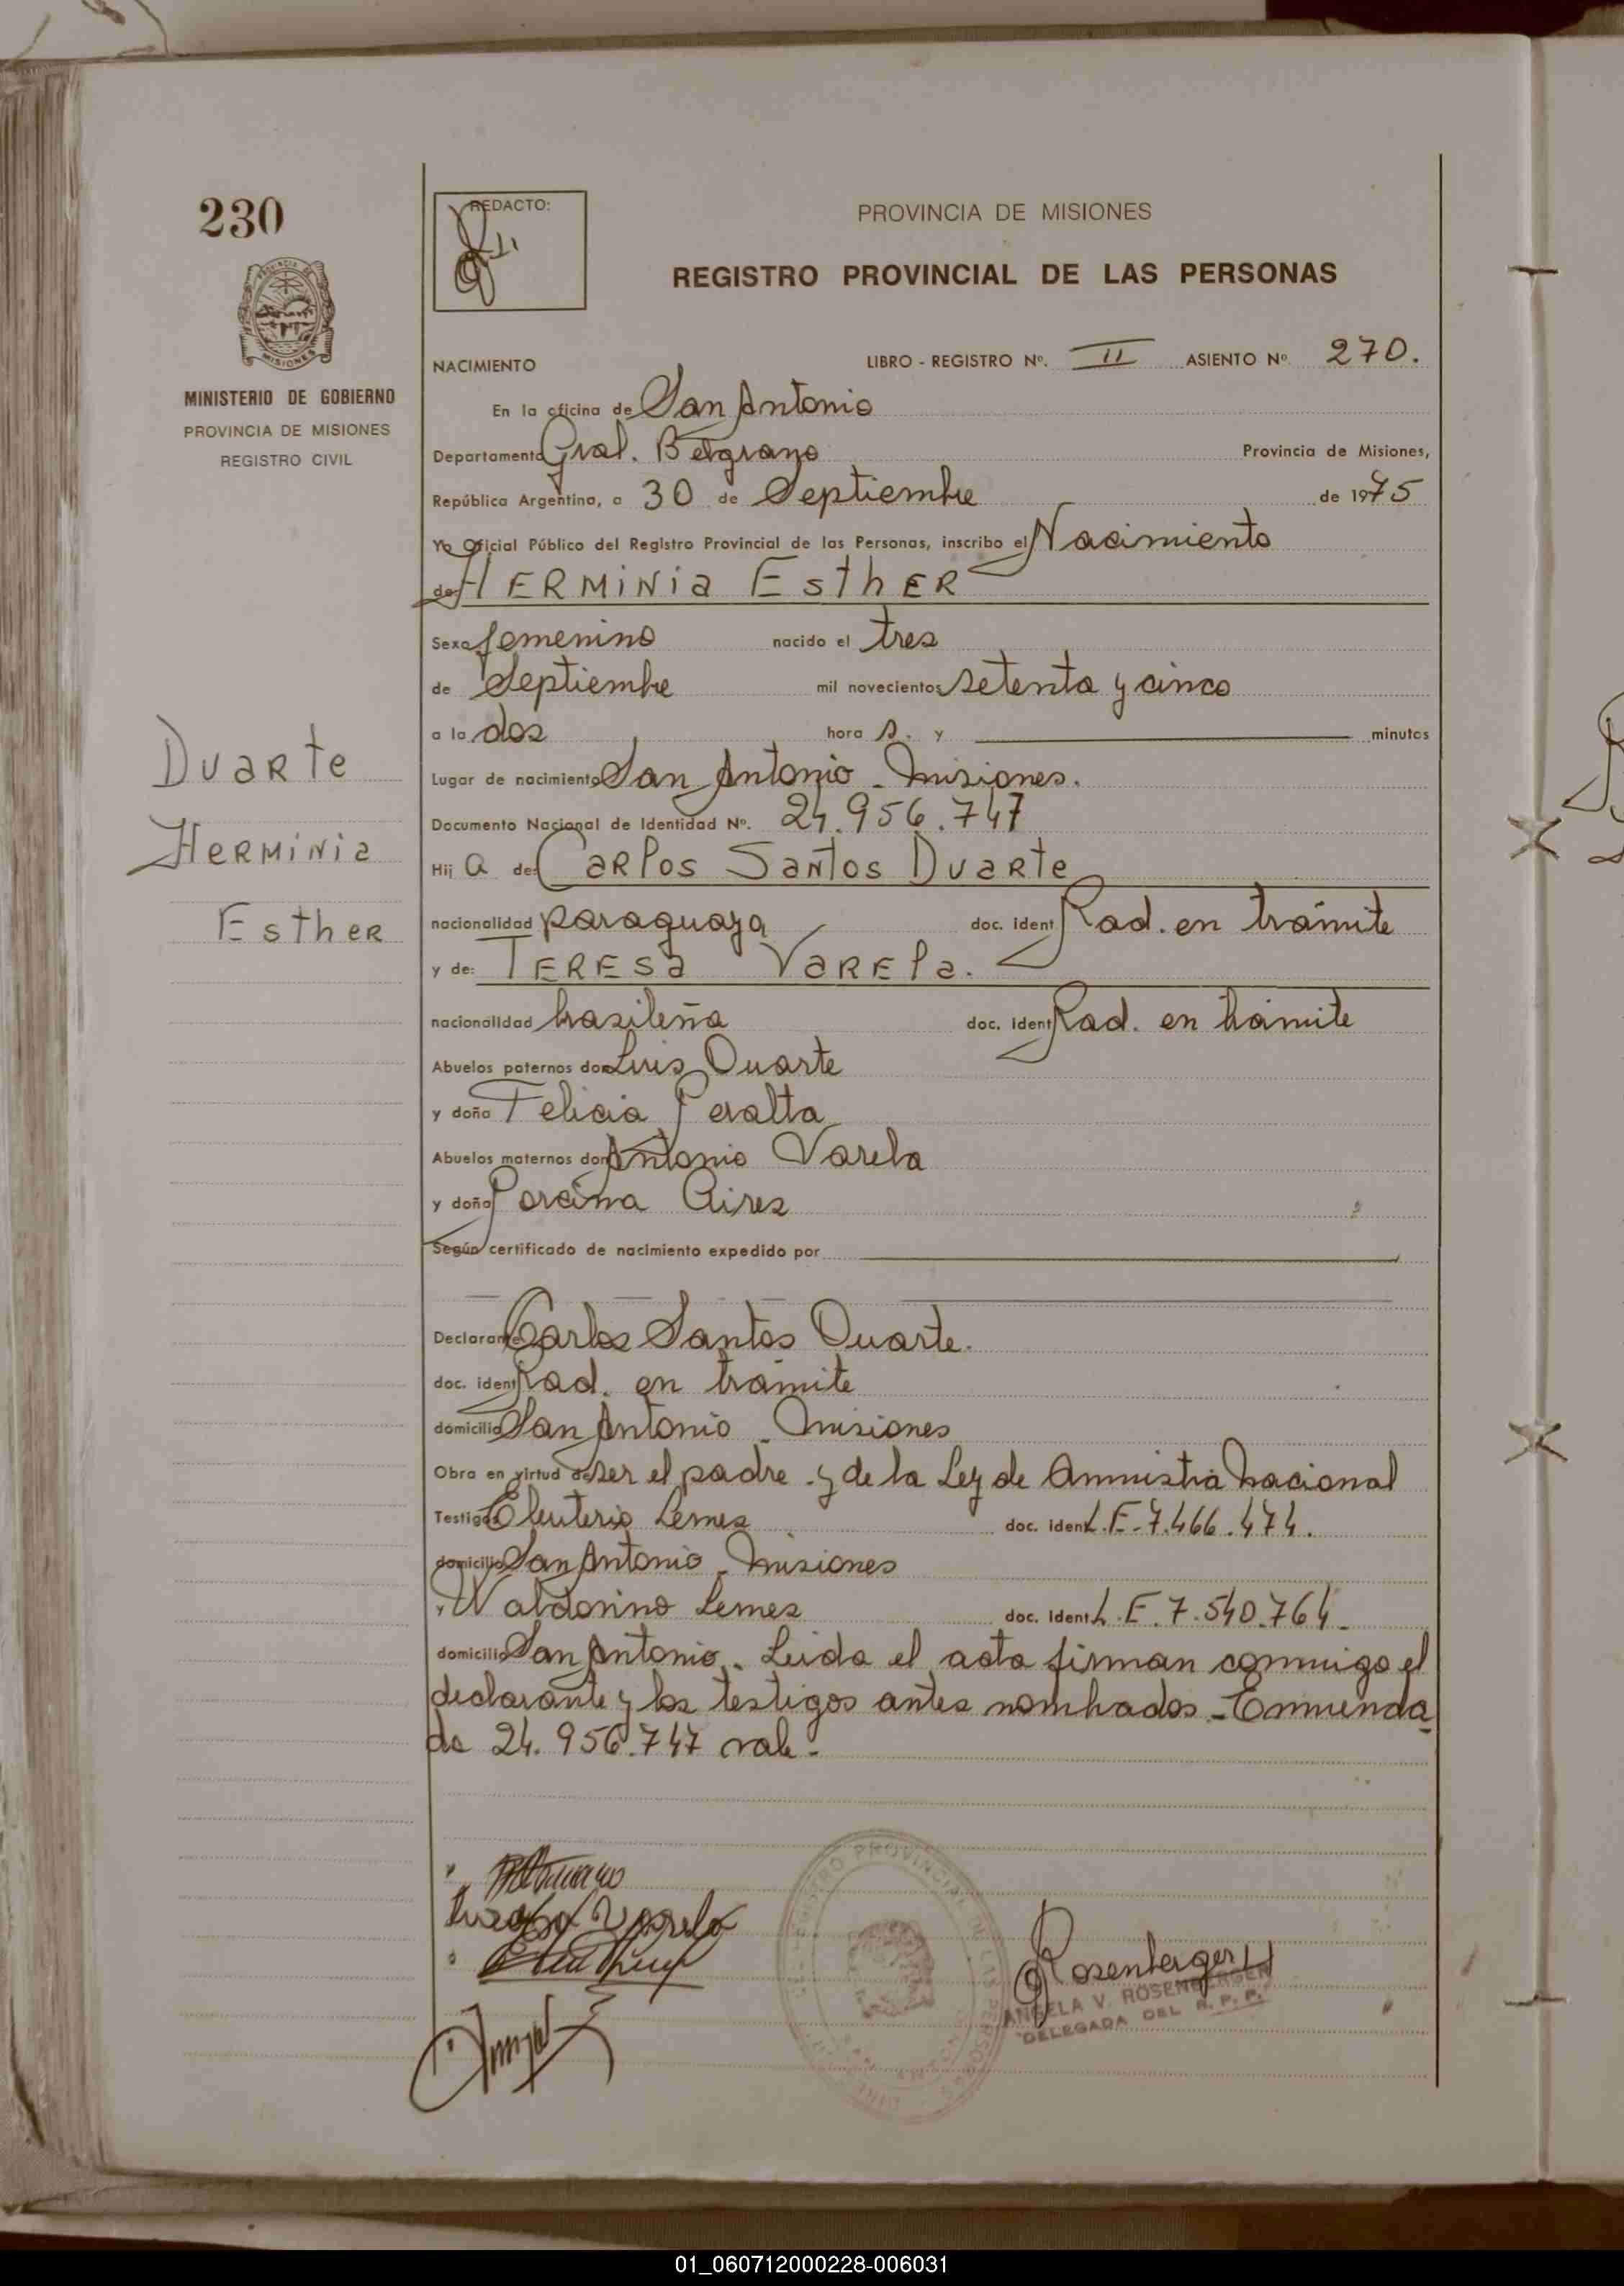 230
REDACTO:
PROVINCIA DE MISIONES
REGISTRO PROVINCIAL DE LAS PERSONAS
MINISTERIO DE GOBIERNO
PROVINCIA DE MISIONES
REGISTRO CIVIL
NACIMIENTO LIBRO - REGISTRO Nº. II ASIENTO Nº. 270.
En la oficina de San Antonio
Departamento Gral. Belgrano Provincia de Misiones,
República Argentina, a 30 de Septiembre de 1975
Yo Oficial Público del Registro Provincial de las Personas, inscribo el Nacimiento
de HERMINIA EsthER
Sexo femenino nacido el tres
de Septiembre mil novecientos setenta y cinco
a la dos hora s. y minutos
Lugar de nacimiento San Antonio - Misiones.
Documento Nacional de Identidad Nº. 24.956.747
Hij a de: CARlos SANtos DUARte
Duarte
Herminia
Esther
nacionalidad paraguaya doc. ident. Rad. en trámite
y de: TERESa VaRELa.
nacionalidad brasileña doc. ident. Rad. en trámite
Abuelos paternos don Luis Duarte
y doña Felicia Peralta
Abuelos maternos don Antonio Varela
y doña Porcina Aires
Según certificado de nacimiento expedido por
Declarante Carlos Santos Duarte.
doc. ident. Rad. en trámite
domicilio San Antonio - Misiones
Obra en virtud de ser el padre y de la Ley de Amnistia Nacional
Testigos Eleuterio Lemes doc. ident. L.E. 7.466.474.
domicilio San Antonio - Misiones
y Waldorino Lemes doc. ident. L.E. 7.540.764.
domicilio San Antonio. Leida el acta firman conmigo el
declarante y los testigos antes nombrados - Enmenda
do 24.956.747 vale.-
Varela
Rosenberger
ANGELA V. ROSENBERGER
DELEGADA DEL R. P. P.
REGISTRO PROVINCIAL DE LAS PERSONAS
01_060712000228-006031